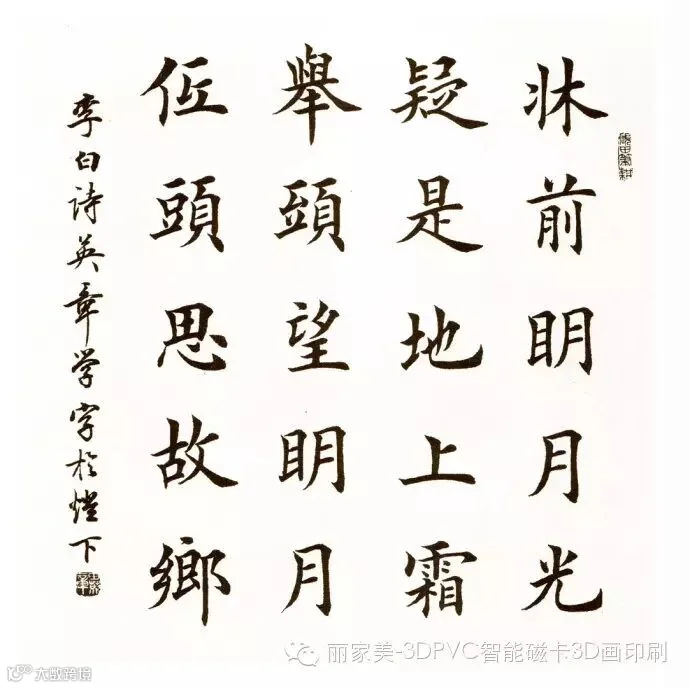 牀前明月光
疑是地上霜
舉頭望明月
低頭思故鄉
李白詩英章学字於燈下
丽家美-3DPVC智能磁卡3D画印刷
大数跨境